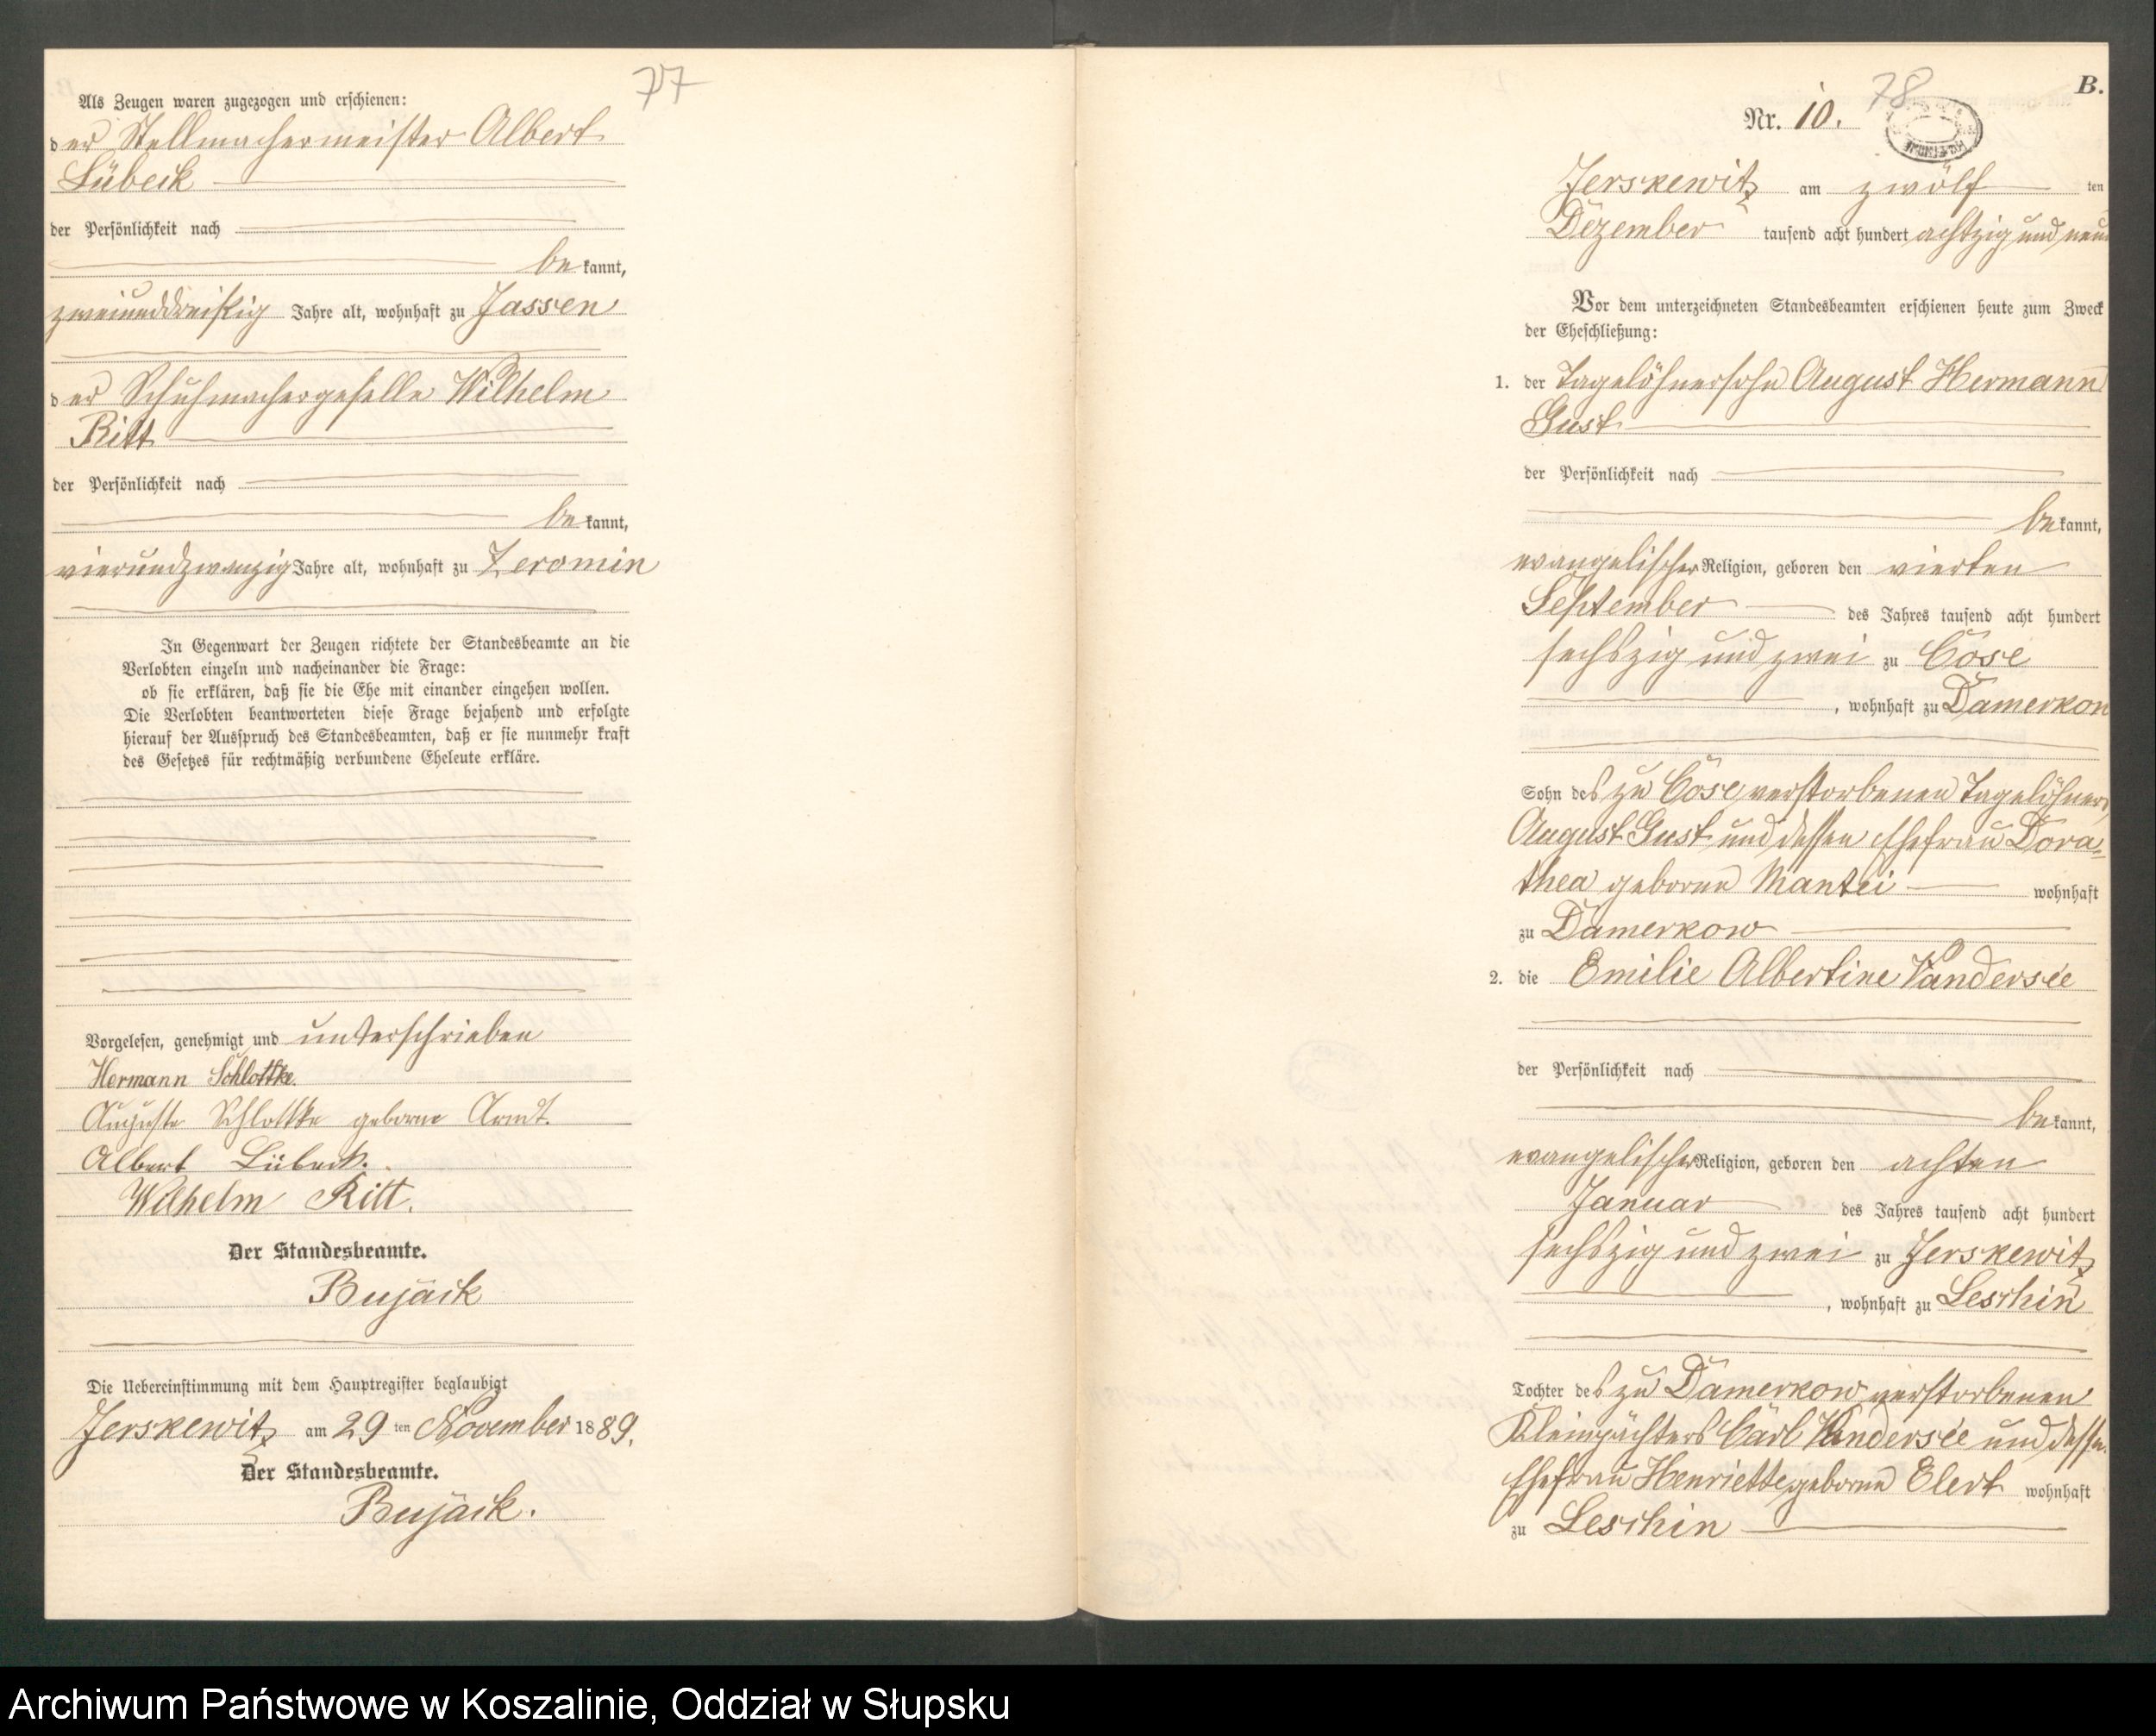 77
Als Zeugen waren zugezogen und erschienen:
der Stellmachermeister Albert
Lübeck
der Persönlichkeit nach
bekannt,
zweiunddreißig Jahre alt, wohnhaft zu Jassen
der Schuhmachergeselle Wilhelm
Ritt
der Persönlichkeit nach
bekannt,
vierundzwanzig Jahre alt, wohnhaft zu Zeromin
In Gegenwart der Zeugen richtete der Standesbeamte an die
Verlobten einzeln und nacheinander die Frage:
ob sie erklären, daß sie die Ehe mit einander eingehen wollen.
Die Verlobten beantworteten diese Frage bejahend und erfolgte
hierauf der Ausspruch des Standesbeamten, daß er sie nunmehr kraft
des Gesetzes für rechtmäßig verbundene Eheleute erkläre.
Vorgelesen, genehmigt und unterschrieben
Hermann Schlottke.
Auguste Schlottke geborne Arndt.
Albert Lübeck.
Wilhelm Ritt.
Der Standesbeamte.
Bujack
Die Uebereinstimmung mit dem Hauptregister beglaubigt
Jerskewitz am 29ten November 1889.
Der Standesbeamte.
Bujack.
78
B.
Nr. 10.
Jerskewitz am zwölf ten
Dezember tausend acht hundert achtzig und neun
Vor dem unterzeichneten Standesbeamten erschienen heute zum Zweck
der Eheschließung:
1. der Tagelöhnersohn August Hermann
Gust
der Persönlichkeit nach
bekannt,
evangelischer Religion, geboren den vierten
September des Jahres tausend acht hundert
sechszig und zwei zu Cose
, wohnhaft zu Damerkow
Sohn des zu Cose verstorbenen Tagelöhners
August Gust und dessen Ehefrau Dora-
thea geborne Mantei wohnhaft
zu Damerkow
2. die Emilie Albertine Vandersee
der Persönlichkeit nach
bekannt,
evangelischer Religion, geboren den achten
Januar des Jahres tausend acht hundert
sechszig und zwei zu Jerskewitz
, wohnhaft zu Leschin
Tochter des zu Damerkow verstorbenen
Kleinpächters Carl Vandersee und dessen
Ehefrau Henriette geborne Elert wohnhaft
zu Leschin
Archiwum Państwowe w Koszalinie, Oddział w Słupsku